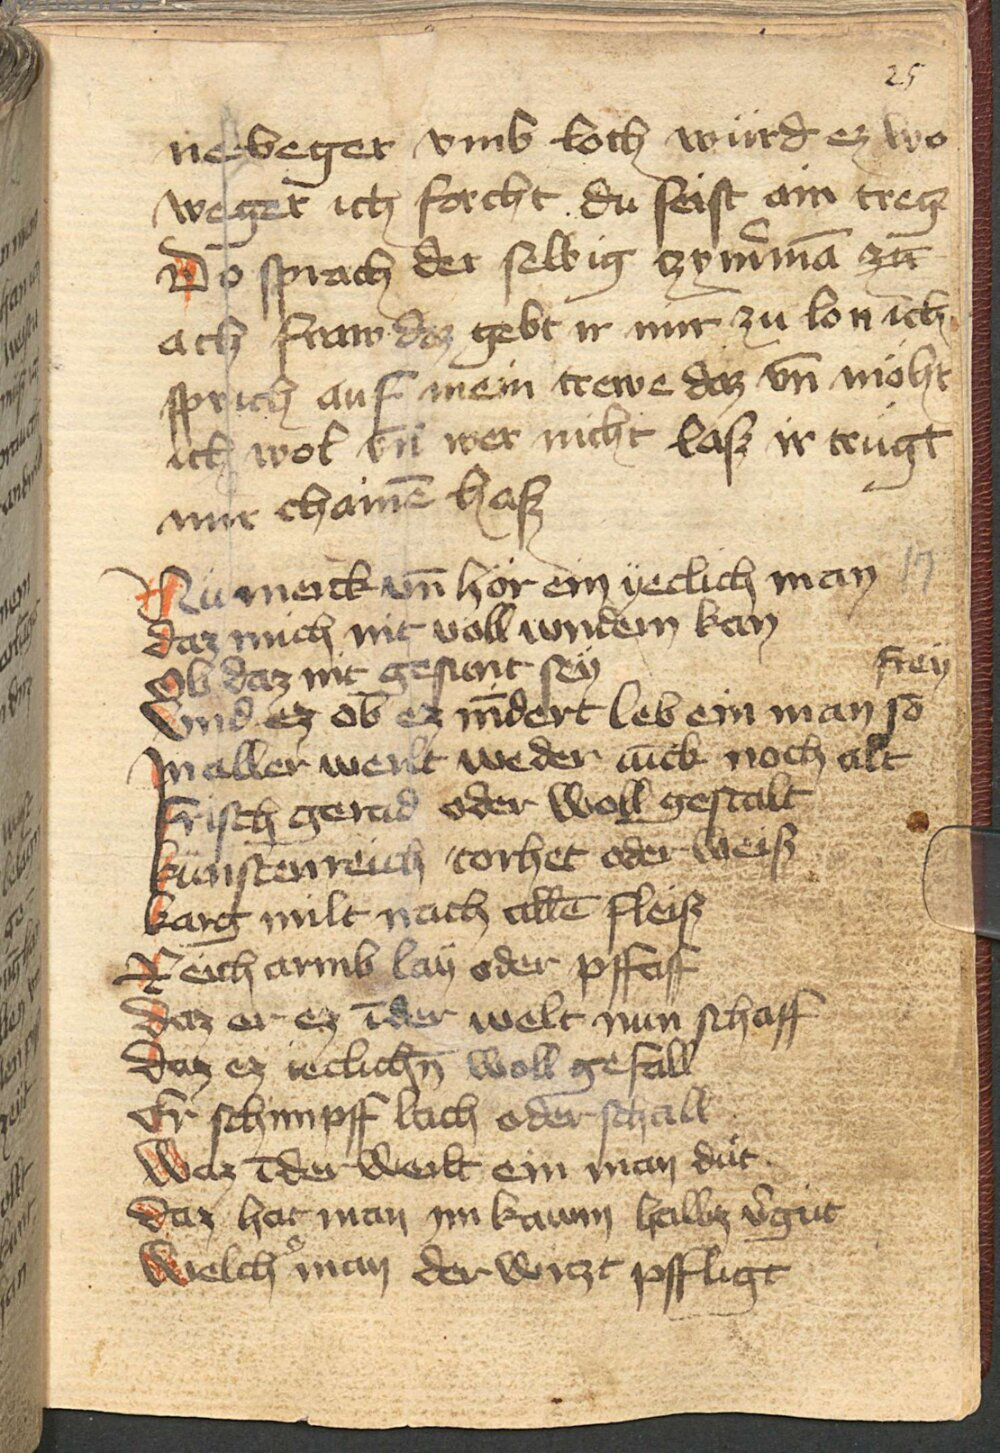 25
nebeger vmb loch würd ez wo
weger ich forcht du seist ain treg
Do sprach der selbig zym̄mā zū
ach fraw daz gebt ir mir zu lon ich
sprich auf mein trewe daz vn̄ möht
ich wol vn̄ wer nicht laß ir trügt
mir chainē haß
17
Nu merck vn̄ hör ein yeclich man
daz mich nit voll wndern kan
Ob daz nit gesunt sey
frey
Vnd ez ob ez nīdert leb ein man so
In aller werlt weder iūck noch alt
frisch gerad oder woll gestalt
künstenreich torhet oder weiß
karg milt nach allē fleiß
Reich armb lay oder pffaff
daz er ez īder welt nun schaff
daz ez ieclichn̄ woll gefall
Er schimpff lach oder schall
Waz īder werlt ein man düt
daz hat man im kawm halbz v̄gut
Welch man der wirzt pffligt